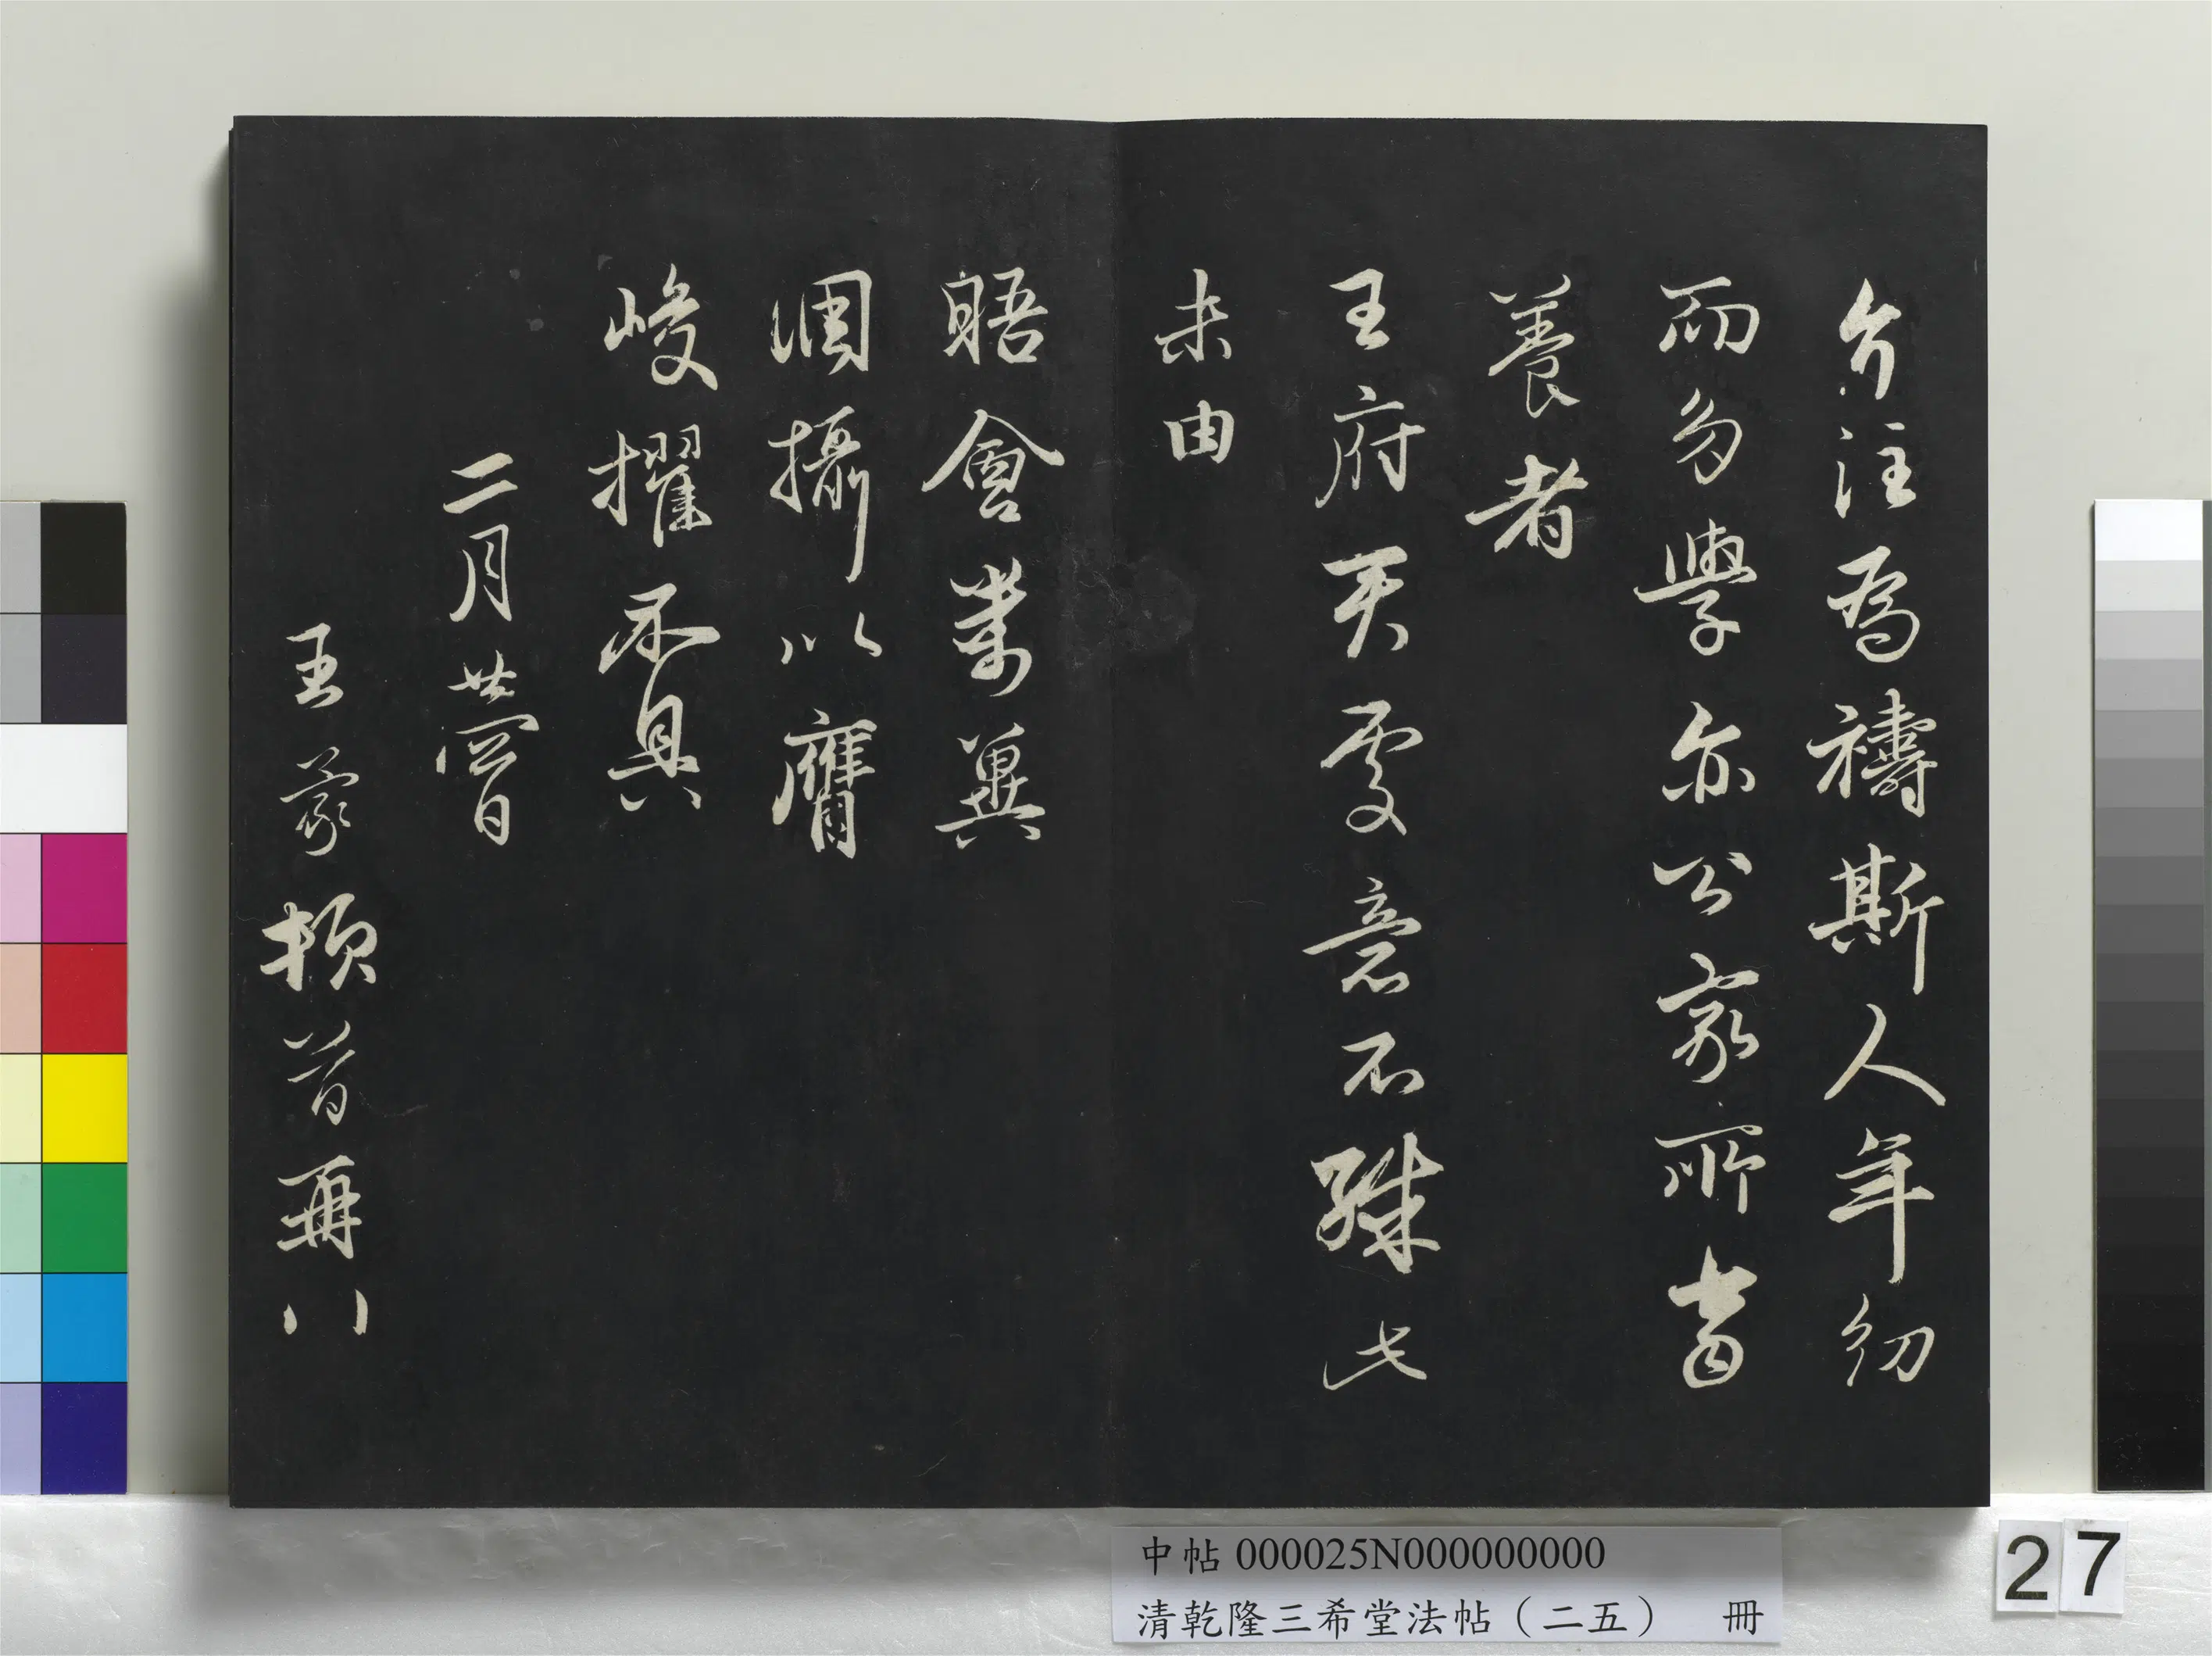 介注為禱斯人年幼
而多學亦公家所當
養者
王府天處意不殊此
未由
晤會萬冀
調攝以膺
峻擢不具
二月廿四日
王蒙頓首再拜
中帖 000025N000000000
清乾隆三希堂法帖（二五） 冊
27